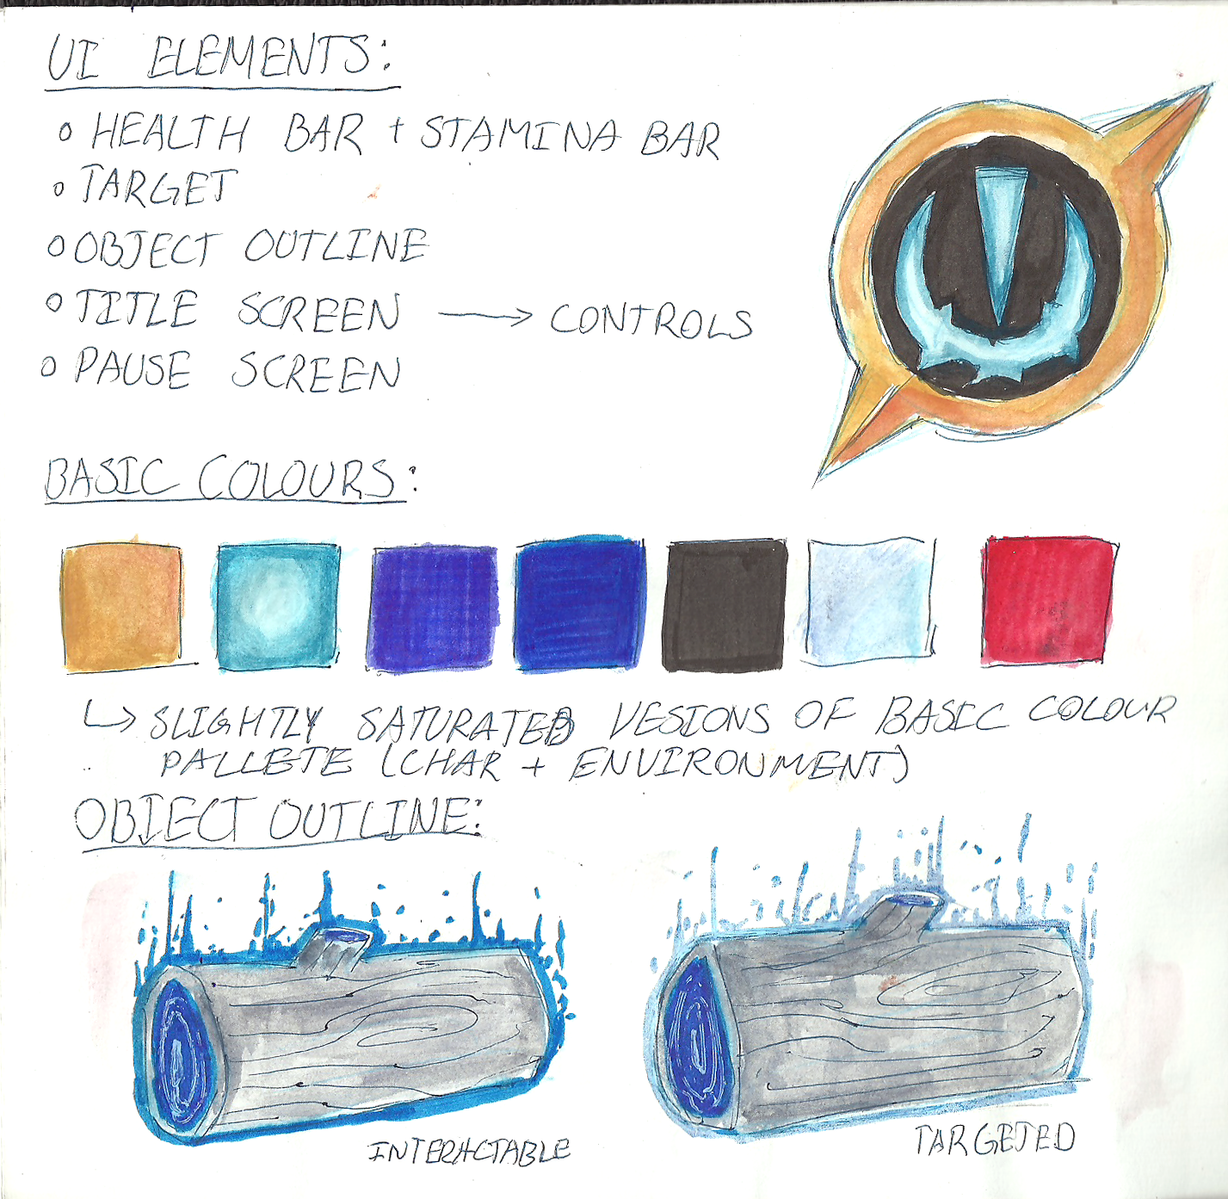 UI ELEMENTS:
o HEALTH BAR + STAMINA BAR
o TARGET
o OBJECT OUTLINE
o TITLE SCREEN → CONTROLS
o PAUSE SCREEN
BASIC COLOURS:
↳ SLIGHTLY SATURATED VESIONS OF BASIC COLOUR
PALLETE (CHAR + ENVIRONMENT)
OBJECT OUTLINE:
INTERACTABLE
TARGETED